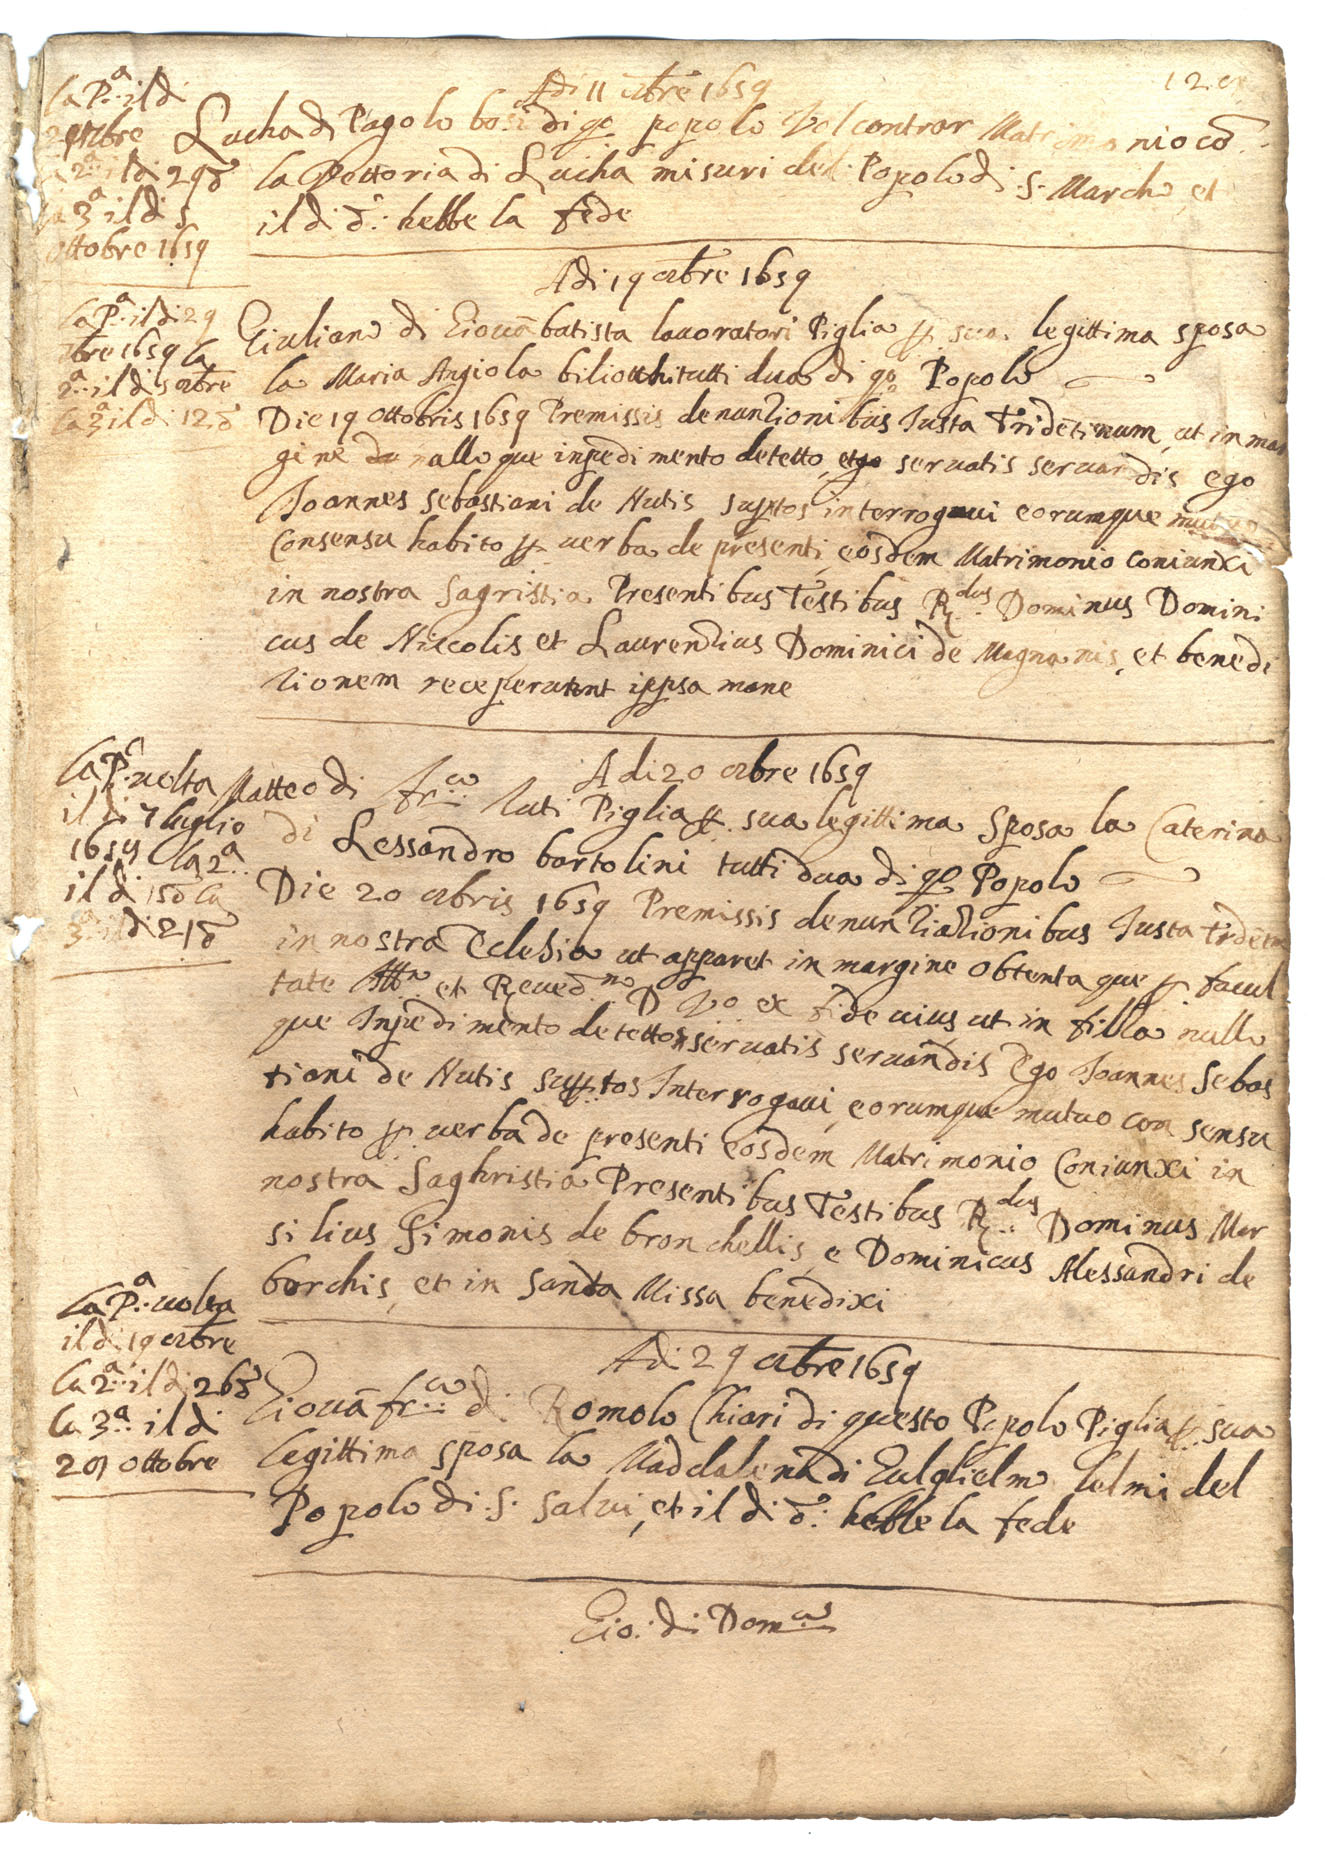 Adi 11 8tbre 1659
la P.ª il di
la 2.ª il di 29 d
la 3.ª il di 5
ottobre 1659
Lucha di Pagolo bosi di q.o popolo vol contrar Matrimonio cō
la Vettoria di Lucha misuri del Popolo di S. March et
il di d.: hebbe la fede
Adi 19 8tbre 1659
la P.ª il di 29
7bre 1659 la
2.ª il di 5 8tbre
la 3.ª il di 12 d
Giulian di Giouā batista lauoratori Piglia p sua legittima sposa
la Maria Angiola biliotthi tutti dua di qo Popolo
Die 19 ottobris 1659 Premissis denuntionibus Iusta Tridētinum, ut in mar
gine nalloque inpedimento detetto, seruatis seruandis ego
Joannes Sebastiani de Nutis suptos interrogaui eorumque mutuo
Consensu habito p uerba de presenti, eosdem Matrimonio coniunxi
in nostra Sagristia Presentibus Testibus R.dus Dominus Domini
cus de Niccolis et Laurentius Dominici de Magnanis, et benedi
tionem receperunt ippsa mane
Adi 20 8bre 1659
la P.ª uolta
il di 7 luglio
1659 la 2.ª
il di 15 d la
3.ª il di 21 d
Matteo di fr.co luti Piglia p. sua legittima Sposa la Caterina
di Lessandro bartolini tutti dua di qo Popolo
Die 20 8bris 1659 Premissis denuntiationibus Iusta trdētin
in nostra Eclesia ut apparet in margine obtenta que p facul
tate et Reued.mo D ex fide uius ut in filla nullo
que Inpedimento detetto seruatis seruandis Ego Joannes Sebas
tiani de Nutis supptos Interrogaui, eorumque mutuo con sensu
habito p. uerba de presenti eosdem Matrimonio Coniunxi in
nostra Saghristia Presentibus Testibus R.dus Dominus Mar
silius Simonis de bronchellis, e Dominicus Alessandri de
borchis, et in Santa Missa benedixi
Adi 29 8tbre 1659
la P.ª uolta
il di 19 8tbre
la 2.ª il di 26 d
la 3.ª il di
29 ottobre
Giouā fr.co di Romolo Chiari di questo Popolo Piglia p. sua
legittima sposa la Maddalena di Gulglielmo lelmi del
Popolo di S. Salui, et il di d.: hebbe la fede
Gio. di Dom.co